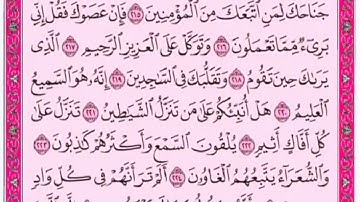 جَنَاحَكَ لِمَنِ ٱتَّبَعَكَ مِنَ ٱلْمُؤْمِنِينَ ٢١٥ فَإِنْ عَصَوْكَ فَقُلْ إِنِّى
بَرِىٓءٌ مِّمَّا تَعْمَلُونَ ٢١٦ وَتَوَكَّلْ عَلَى ٱلْعَزِيزِ ٱلرَّحِيمِ ٢١٧ ٱلَّذِى
يَرَىٰكَ حِينَ تَقُومُ ٢١٨ وَتَقَلُّبَكَ فِى ٱلسَّٰجِدِينَ ٢١٩ إِنَّهُۥ هُوَ ٱلسَّمِيعُ
ٱلْعَلِيمُ ٢٢٠ هَلْ أُنَبِّئُكُمْ عَلَىٰ مَن تَنَزَّلُ ٱلشَّيَٰطِينُ ٢٢١ تَنَزَّلُ عَلَىٰ
كُلِّ أَفَّاكٍ أَثِيمٍ ٢٢٢ يُلْقُونَ ٱلسَّمْعَ وَأَكْثَرُهُمْ كَٰذِبُونَ ٢٢٣
وَٱلشُّعَرَآءُ يَتَّبِعُهُمُ ٱلْغَاوُۥنَ ٢٢٤ أَلَمْ تَرَ أَنَّهُمْ فِى كُلِّ وَادٍ